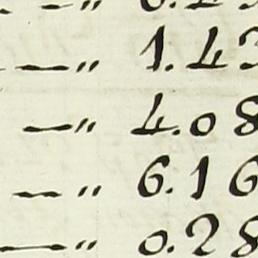 — " 1.43
— " 4.08
— " 6.16
— " 0.28